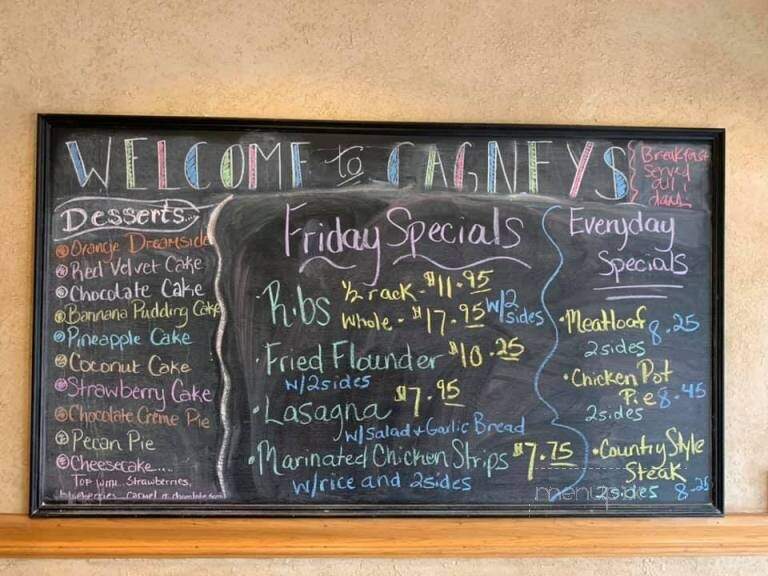 WELCOME to CAGNEYS
Breakfast
Served
all
day
Desserts...
Orange Dreamside
Red Velvet Cake
Chocolate Cake
Bannana Pudding Cake
Pineapple Cake
Coconut Cake
Strawberry Cake
Chocolate Creme Pie
Pecan Pie
Cheesecake....
Top with... Strawberries,
blueberries
Friday Specials
• Ribs ½ rack - $11.95
Whole - $17.95 w/2 sides
• Fried Flounder $10.25
w/2 sides
• Lasagna $7.95
w/Salad + Garlic Bread
• Marinated Chicken Strips $7.75
w/rice and 2 sides
Everyday
Specials
• Meatloaf 8.25
2 sides
• Chicken Pot
Pie 8.45
2 sides
• Country Style
Steak
2 sides 8.25